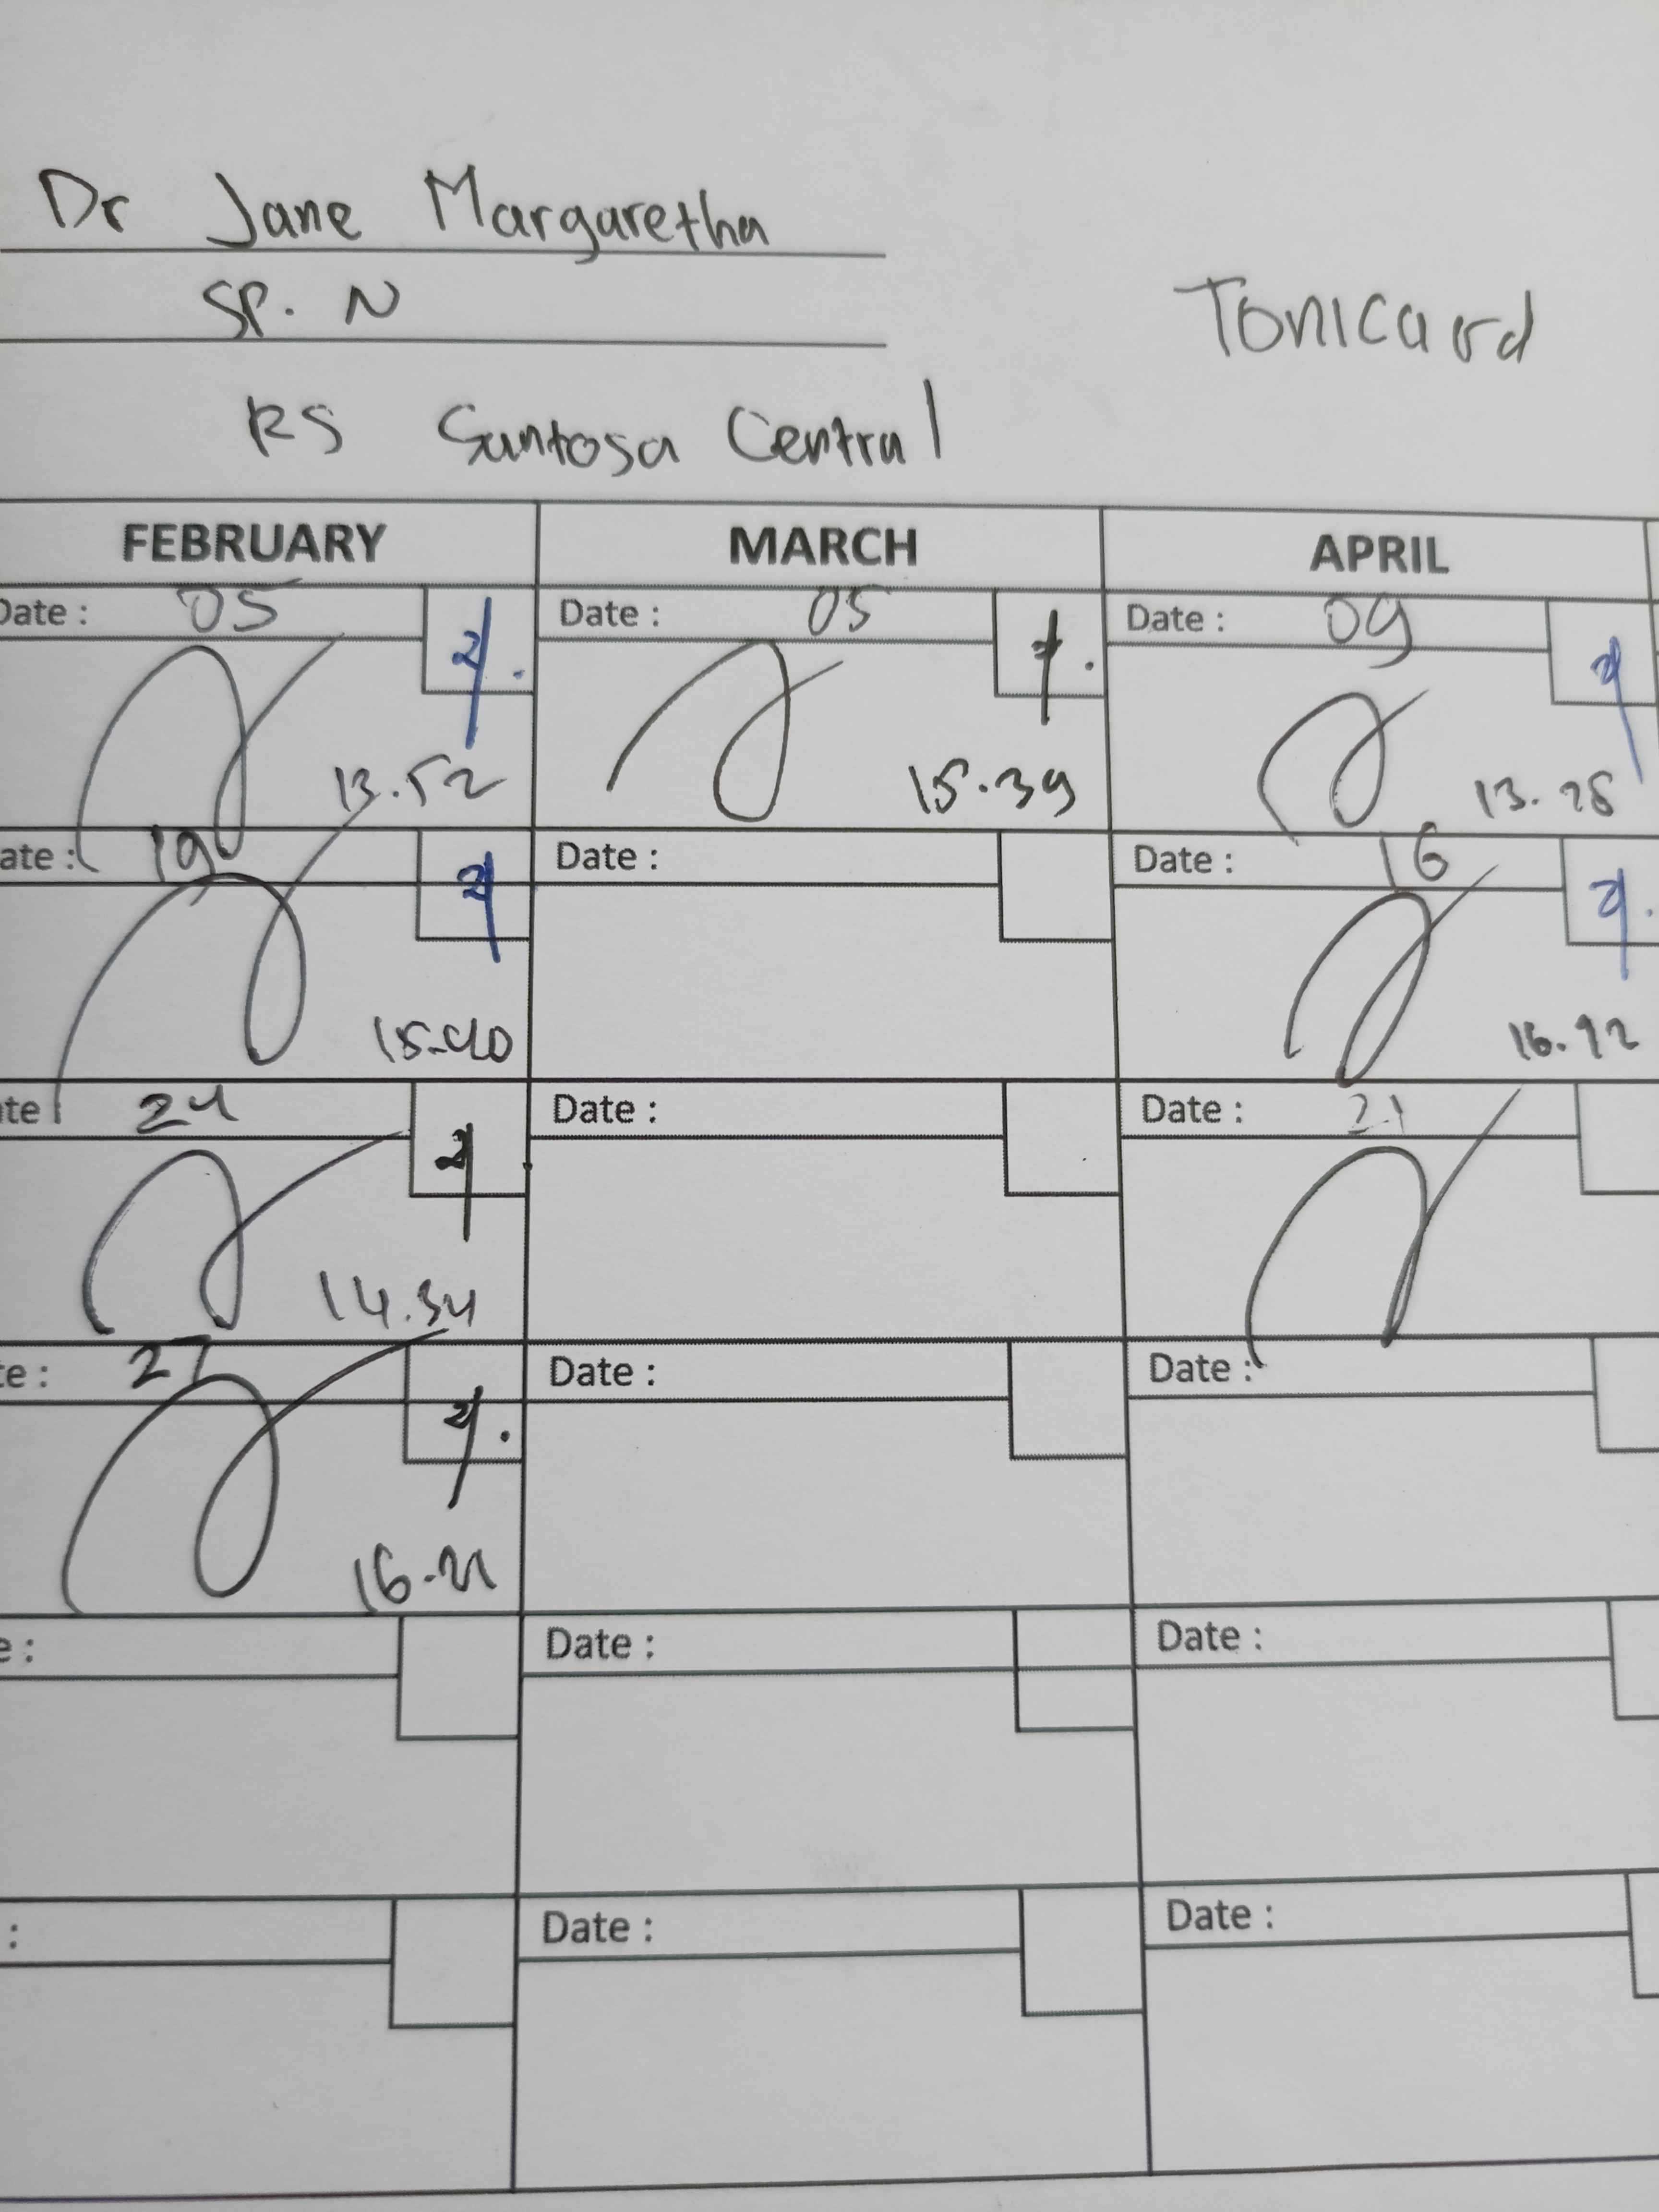 Dr Jane Margaretha
SP. N
Tonicard
RS Santosa Central
FEBRUARY MARCH APRIL
Date : 05 Date : 05 Date : 09
13.52 15.39 13.28
ate : 19 Date : Date : 16
15.40 16.12
te : 24 Date : Date : 21
14.34
e : 27 Date : Date :
16.21
e : Date : Date :
: Date : Date :